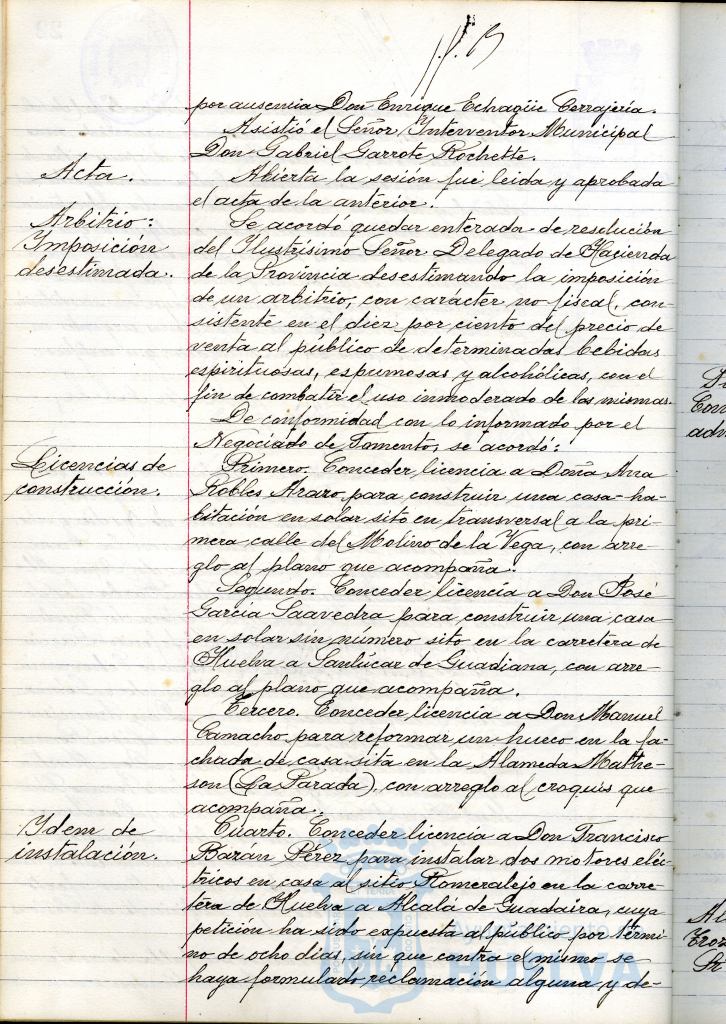 por ausencia Don Enrique Echagüe Cerrajería.
Asistió el Señor Interventor Municipal
Don Gabriel Garrote Rochette.
Acta.
Abierta la sesión fué leida y aprobada
el acta de la anterior.
Arbitrio:
Imposición
desestimada.
Se acordó quedar enterada de resolución
del Ilustrísimo Señor Delegado de Hacienda
de la Provincia desestimando la imposición
de un arbitrio, con caracter no fiscal, con-
sistente en el diez por ciento del precio de
venta al público de determinadas bebidas
espirituosas, espumosas y alcohólicas, con el
fin de combatir el uso inmoderado de las mismas.
De conformidad con lo informado por el
Negociado de Fomento, se acordó:
Licencias de
construcción.
Primero. Conceder licencia a Doña Ana
Robles para construir una casa-ha-
bitación en solar sito en transversal a la pri-
mera calle del Molino de la Vega, con arre-
glo al plano que acompaña.
Segundo. Conceder licencia a Don José
García Saavedra para construir una casa
en solar sin número sito en la carretera de
Huelva a Sanlúcar de Guadiana, con arre-
glo al plano que acompaña.
Tercero. Conceder licencia a Don Manuel
Camacho para reformar un hueco en la fa-
chada de casa sita en la Alameda Mathe-
son (La Parada), con arreglo al croquis que
acompaña.
Idem de
instalación.
Cuarto. Conceder licencia a Don Francisco
Bazán Pérez para instalar dos motores eléc-
tricos en casa al sitio Romeralejo en la carre-
tera de Huelva a Alcalá de Guadaira, cuya
petición ha sido expuesta al público por térmi-
no de ocho días, sin que contra el mismo se
haya formulado reclamación alguna y de-
Ayuntamiento
HUELVA